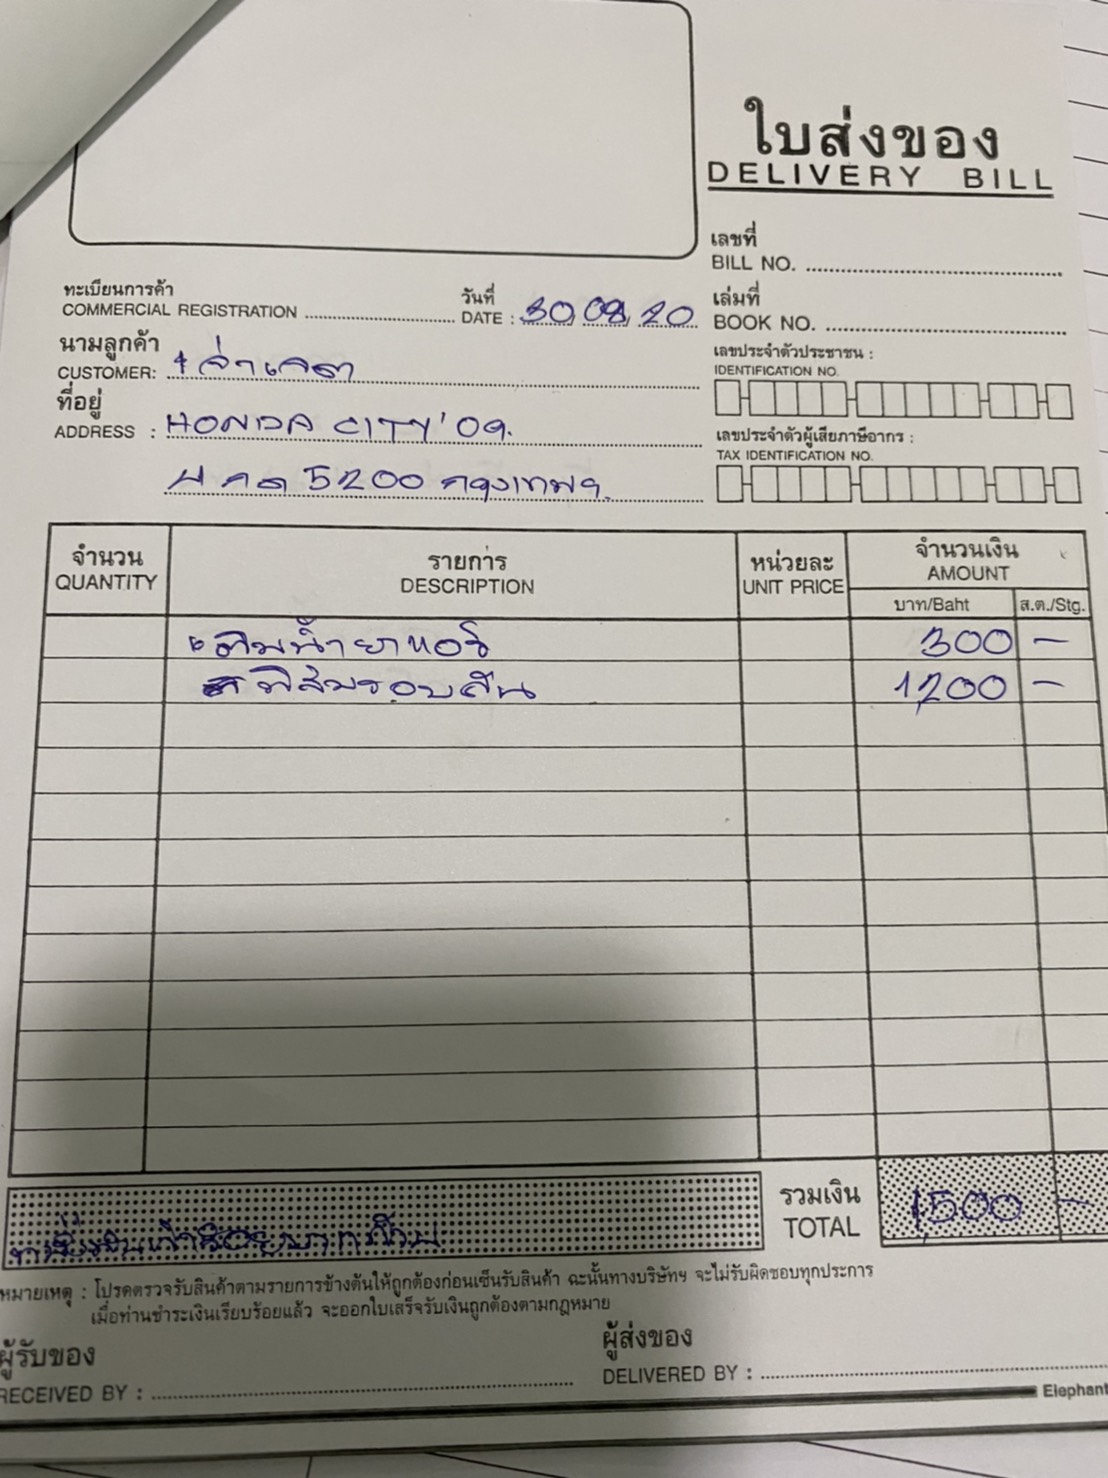 ใบส่งของ
DELIVERY BILL
เลขที่
BILL NO.
ทะเบียนการค้า
COMMERCIAL REGISTRATION
วันที่
DATE : 30 08 20
เล่มที่
BOOK NO.
นามลูกค้า
CUSTOMER:
เลขประจำตัวประชาชน :
IDENTIFICATION NO.
ที่อยู่
ADDRESS : HONDA CITY' 09.
5200 กรุงเทพฯ
เลขประจำตัวผู้เสียภาษีอากร :
TAX IDENTIFICATION NO.
จำนวน รายการ หน่วยละ จำนวนเงิน
QUANTITY DESCRIPTION UNIT PRICE AMOUNT
บาท/Baht ส.ต./Stg.
เติมน้ำยาแอร์ 300 –
ฟิล์มรอบคัน 1,200 –
รวมเงิน 1500 –
TOTAL
หนึ่งพันห้าร้อยบาทถ้วน
หมายเหตุ : โปรดตรวจรับสินค้าตามรายการข้างต้นให้ถูกต้องก่อนเซ็นรับสินค้า ฉะนั้นทางบริษัทฯ จะไม่รับผิดชอบทุกประการ
เมื่อท่านชำระเงินเรียบร้อยแล้ว จะออกใบเสร็จรับเงินถูกต้องตามกฎหมาย
ผู้รับของ
RECEIVED BY :
ผู้ส่งของ
DELIVERED BY :
Elephant